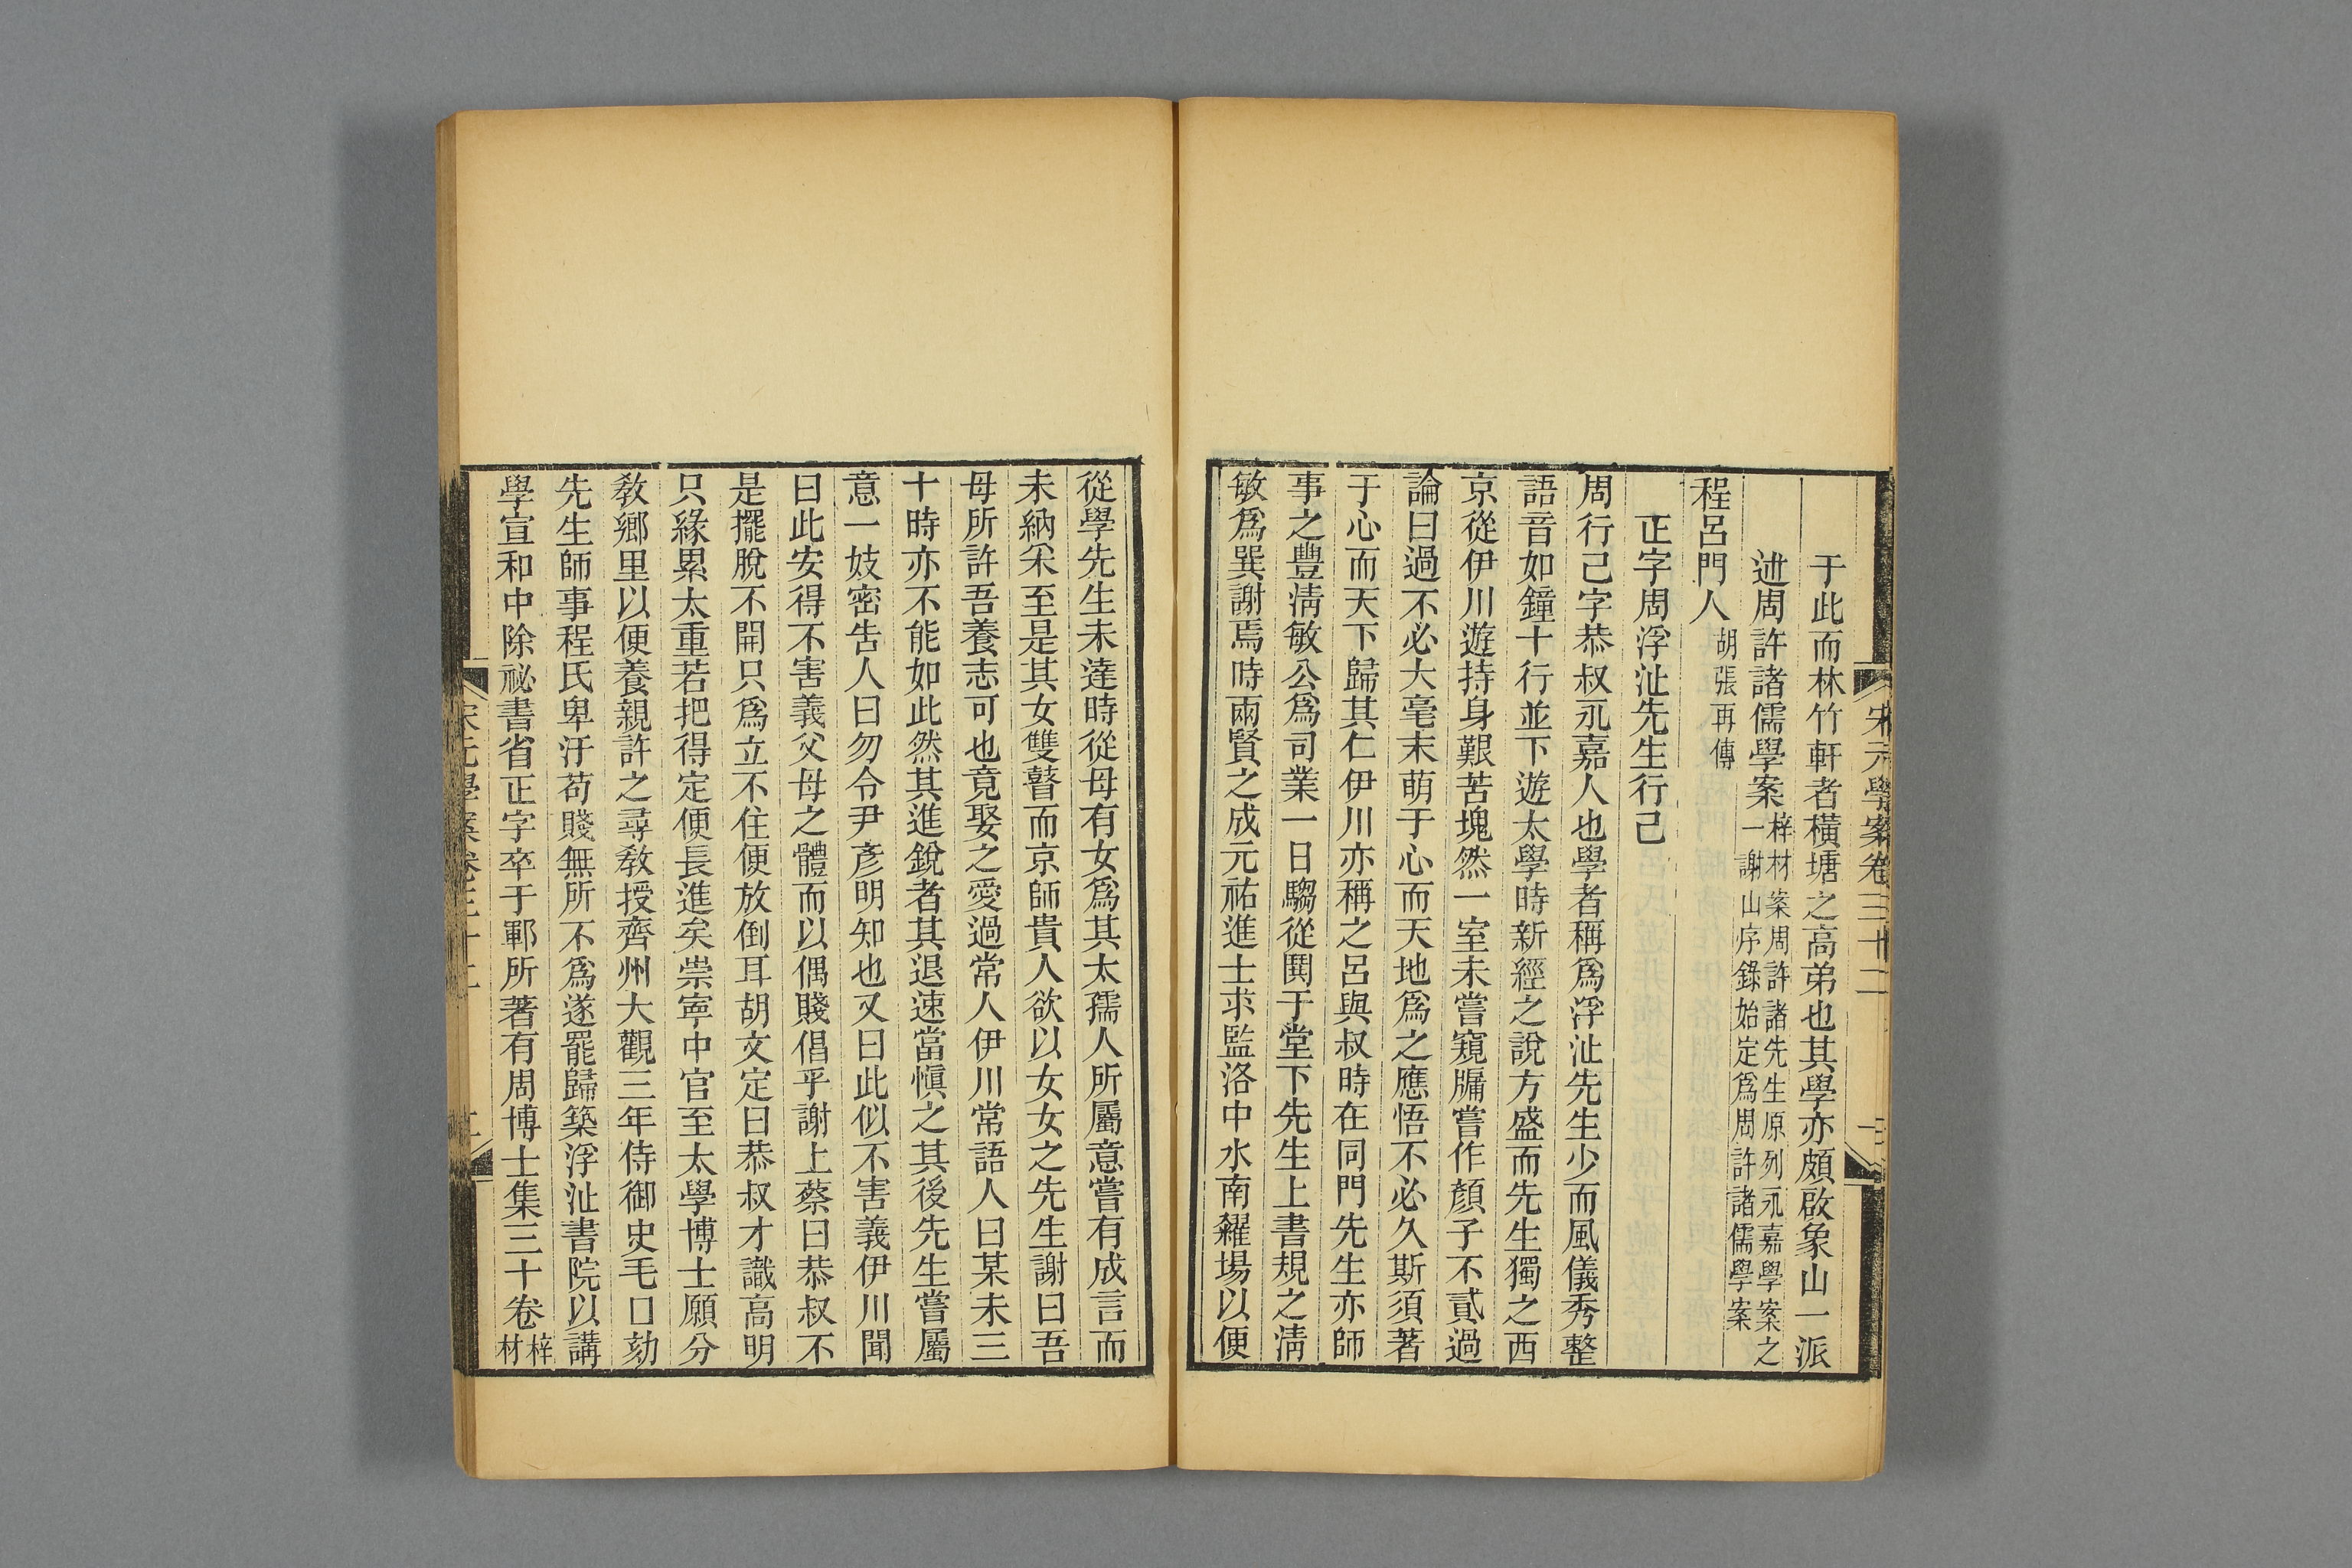 宋元學案卷三十二
于此而林竹軒者橫塘之高弟也其學亦頗啟象山一派
述周許諸儒學案梓材案周許諸先生原列永嘉學案之
一謝山序錄始定爲周許諸儒學案
程呂門人胡張再傳
正字周浮沚先生行己
周行己字恭叔永嘉人也學者稱爲浮沚先生少而風儀秀整
語音如鐘十行並下遊太學時新經之說方盛而先生獨之西
京從伊川遊持身艱苦塊然一室未嘗窺牖嘗作顏子不貳過
論曰過不必大毫末萌于心而天地爲之應悟不必久斯須著
于心而天下歸其仁伊川亦稱之呂與叔時在同門先生亦師
事之豐淸敏公爲司業一日騶從鬨于堂下先生上書規之淸
敏爲巽謝焉時兩賢之成元祐進士求監洛中水南糴場以便
從學先生未達時從母有女爲其太孺人所屬意嘗有成言而
未納采至是其女雙瞽而京師貴人欲以女女之先生謝曰吾
母所許吾養志可也竟娶之愛過常人伊川常語人曰某未三
十時亦不能如此然其進銳者其退速當愼之其後先生嘗屬
意一妓密告人曰勿令尹彥明知也又曰此似不害義伊川聞
曰此安得不害義父母之體而以偶賤倡乎謝上蔡曰恭叔不
是擺脫不開只爲立不住便放倒耳胡文定曰恭叔才識高明
只緣累太重若把得定便長進矣崇寧中官至太學博士願分
敎鄉里以便養親許之尋敎授齊州大觀三年侍御史毛口劾
先生師事程氏卑汙苟賤無所不爲遂罷歸築浮沚書院以講
學宣和中除祕書省正字卒于鄆所著有周博士集三十卷梓
材
宋元學案卷三十二